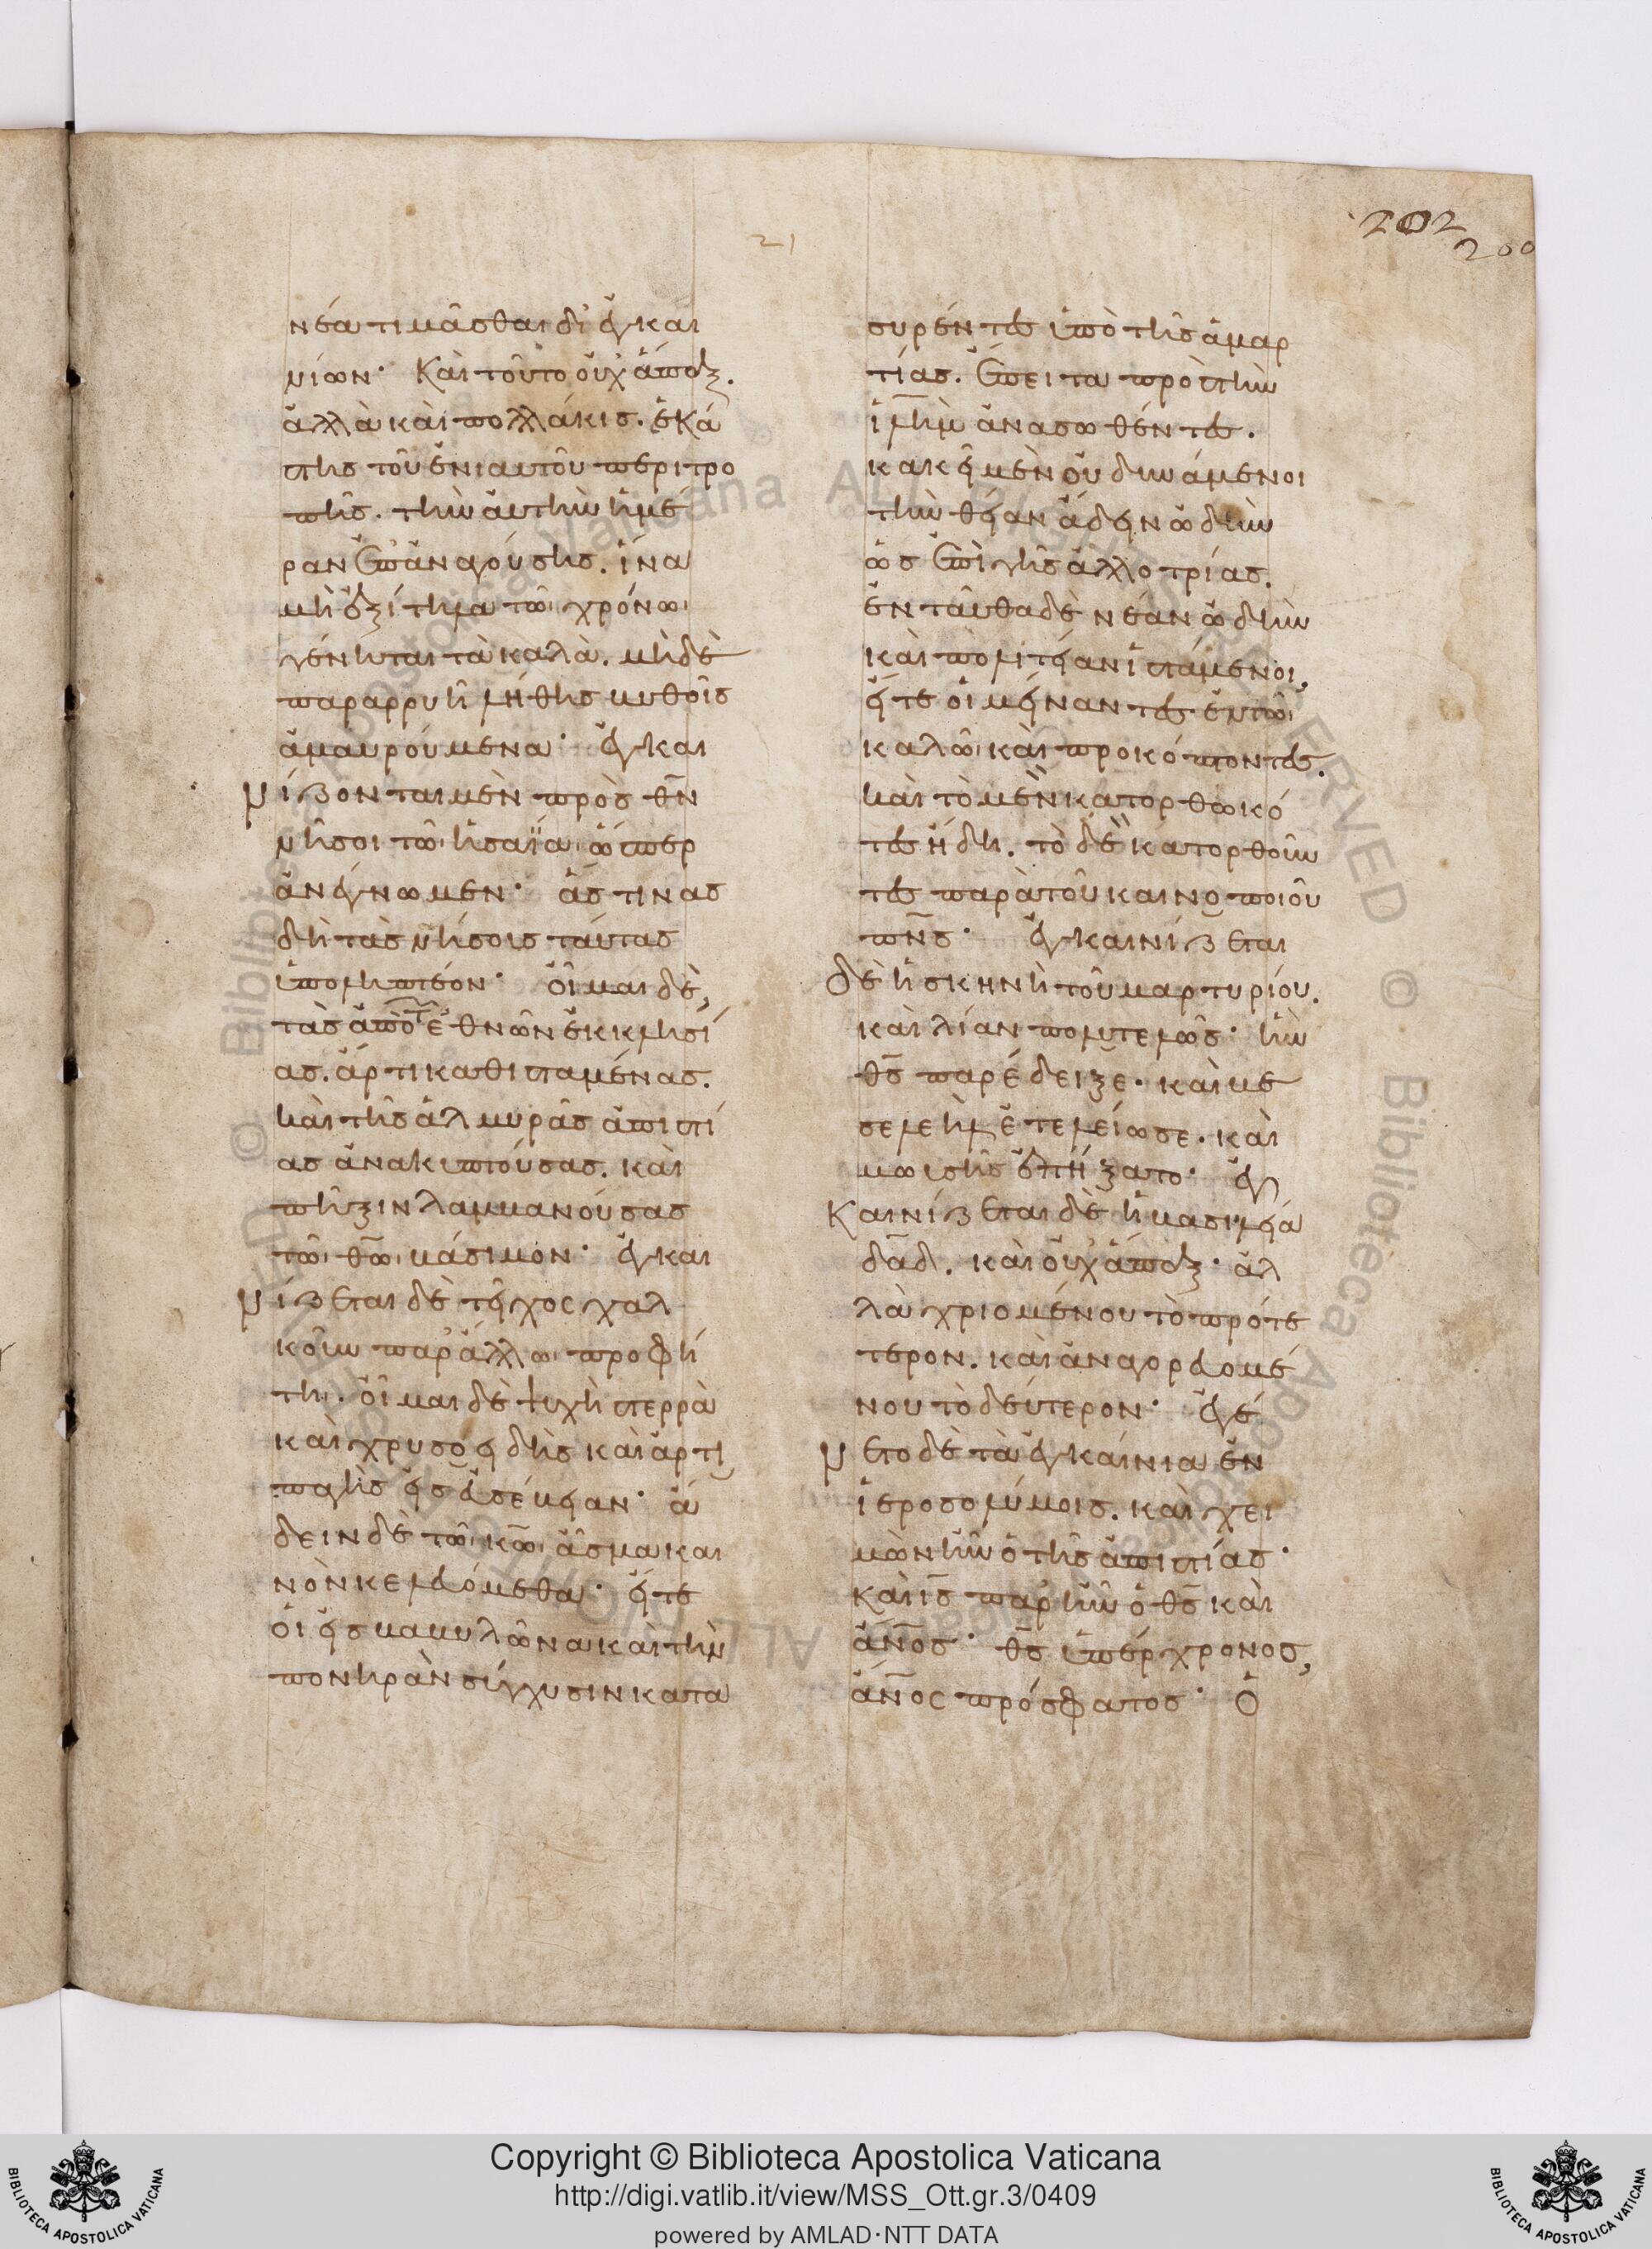 νέα τιμᾶσθαι δι' ἐγκαι
νίων· Καὶ τοῦτο οὐχ' ἅπαξ.
ἀλλὰ καὶ πολλάκις. ἑκά
στης τοῦ ἐνιαυτοῦ περιτρο
πῆς. τὴν αὐτὴν ἡμέ
ραν ἐπ' ἀναγούσης. ἵνα
μὴ ἐξίτηλα τῶι χρόνωι
γένηται τὰ καλὰ. μὴδὲ
παραρρυῆ λήθης βυθοῖς
ἀμαυρούμενα· ἐγκαι
νίζονται μὲν πρὸς θν̄
νῆσοι τῶι ἡσαΐαι ὥσπερ
ἀνέγνωμεν· ἅς τινας
δὴ τὰς νήσοις ταύτας
ὑποληπτέον· οἶμαι δὲ,
τὰς ἀπὸ τ ἐθνῶν ἐκκλησί
ας. ἄρτι καθισταμένας.
καὶ τῆς ἁλμυρᾶς ἀπιστί
ας ἀνακυπτούσας. καὶ
πῆξιν λαμβανούσας
τῶι θω̄ι βάσιμον· ἐγκαι
νίζεται δὲ τεῖχος χαλ
κοῦν παρ' ἄλλωι προφή
τηι. οἶμαι δὲ ψυχὴ στερρὰ
καὶ χρυσοειδὴς καὶ ἀρτι
παγὴς εἰς εὐσέβειαν· ἄ
δειν δὲ τῶι κω̄ι ἆσμα και
νὸν κελευόμεθα· εἴτε
οἱ εἰς βαβυλῶνα καὶ τὴν
πονηρὰν σύγχυσιν κατα
συρέντες ὑπὸ τῆς ἁμαρ
τίας. ἔπειτα πρὸς τὴν
ἱλὴμ ἀνασωθέντες.
κἀκεῖ μὲν οὐ δυνάμενοι
τὴν θείαν ἄδειν ὠδὴν
ὡς ἐπὶ γῆς ἀλλοτρίας.
ἐνταῦθα δὲ νέαν ὠδὴν
καὶ πολιτείαν ἱστάμενοι,
εἴτε οἱ μείναντες ἐν τῶι
καλῶι καὶ προκόπτοντες.
καὶ τὸ μὲν κατορθωκό
τες ἤδη. τὸ δὲ κατορθοῦν
τες παρὰ τοῦ καινοποιοῦ
πν̄ς· ἐγκαινίζεται
δὲ ἡ σκηνὴ τοῦ μαρτυρίου.
καὶ λίαν πολυτελῶς· ἣν
θς̄ παρέδειξε. καὶ βε
σελεὴλ ἐτελείωσε. καὶ
μωυσῆς ἐπήξατο· ἐγ
Καινίζεται δὲ ἡ βασιλεία
δᾱδ. καὶ οὐχ' ἅπαξ· ἀλ
λὰ χριομένου τὸ πρότε
τερον. καὶ ἀναγορευομέ
νου τὸ δεύτερον· ἐγέ
νετο δὲ τὰ ἐγκαίνια ἐν
ἱεροσολύμοις. καὶ χει
μὼν ἦν ὁ τῆς ἀπιστίας·
Καὶ ις̄ παρ' ἦν ὁ θς̄ καὶ
ἄνο̄ς· θς̄ ὑπέρχρονος,
ἄνο̄ς πρόσφατος· Ὁ
21
202
200
Copyright © Biblioteca Apostolica Vaticana
http://digi.vatlib.it/view/MSS_Ott.gr.3/0409
powered by AMLAD·NTT DATA
BIBLIOTECA APOSTOLICA VATICANA
BIBLIOTECA APOSTOLICA VATICANA